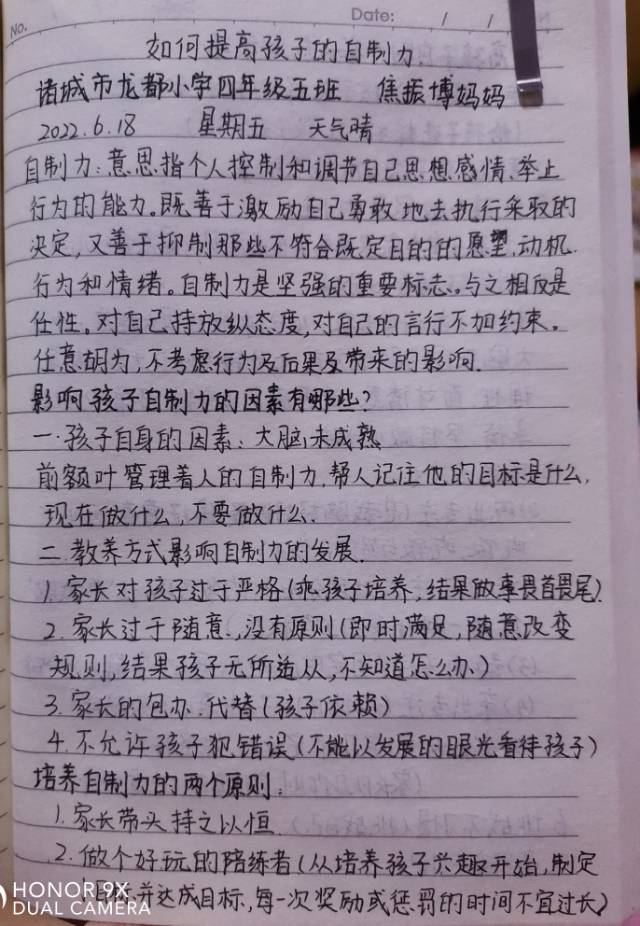 No.
Date: / /
如何提高孩子的自制力
诸城市龙都小学四年级五班 焦振博妈妈
2022.6.18 星期五 天气晴
自制力:意思指个人控制和调节自己思想感情、举止
行为的能力。既善于激励自己勇敢地去执行采取的
决定,又善于抑制那些不符合既定目的的愿望,动机.
行为和情绪。自制力是坚强的重要标志。与之相反是
任性。对自己持放纵态度,对自己的言行不加约束。
任意胡为,不考虑行为及后果及带来的影响.
影响孩子自制力的因素有哪些?
一.孩子自身的因素:大脑未成熟
前额叶管理着人的自制力,帮人记住他的目标是什么,
现在做什么,不要做什么.
二.教养方式影响自制力的发展.
1.家长对孩子过于严格(乖孩子培养,结果做事畏首畏尾).
2.家长过于随意,没有原则(即时满足,随意改变
规则,结果孩子无所适从,不知道怎么办.)
3.家长的包办.代替(孩子依赖)
4.不允许孩子犯错误(不能以发展的眼光看待孩子)
培养自制力的两个原则:
1.家长带头持之以恒
2.做个好玩的陪练者(从培养孩子兴趣开始,制定
小目标并达成目标,每一次奖励或惩罚的时间不宜过长)
HONOR 9X
DUAL CAMERA